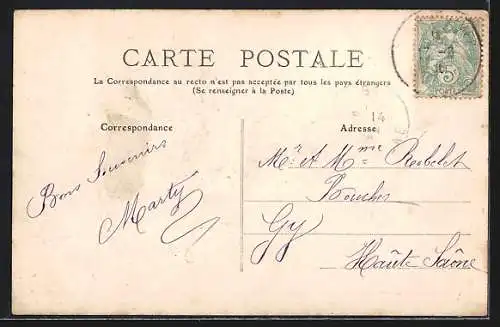 CARTE POSTALE
La Correspondance au recto n'est pas acceptée par tous les pays étrangers
(Se renseigner à la Poste)
Correspondance
Adresse
Bons Souvenirs
Marty
Mr et Mme
Gy
Haute Saône
5
POSTES
14